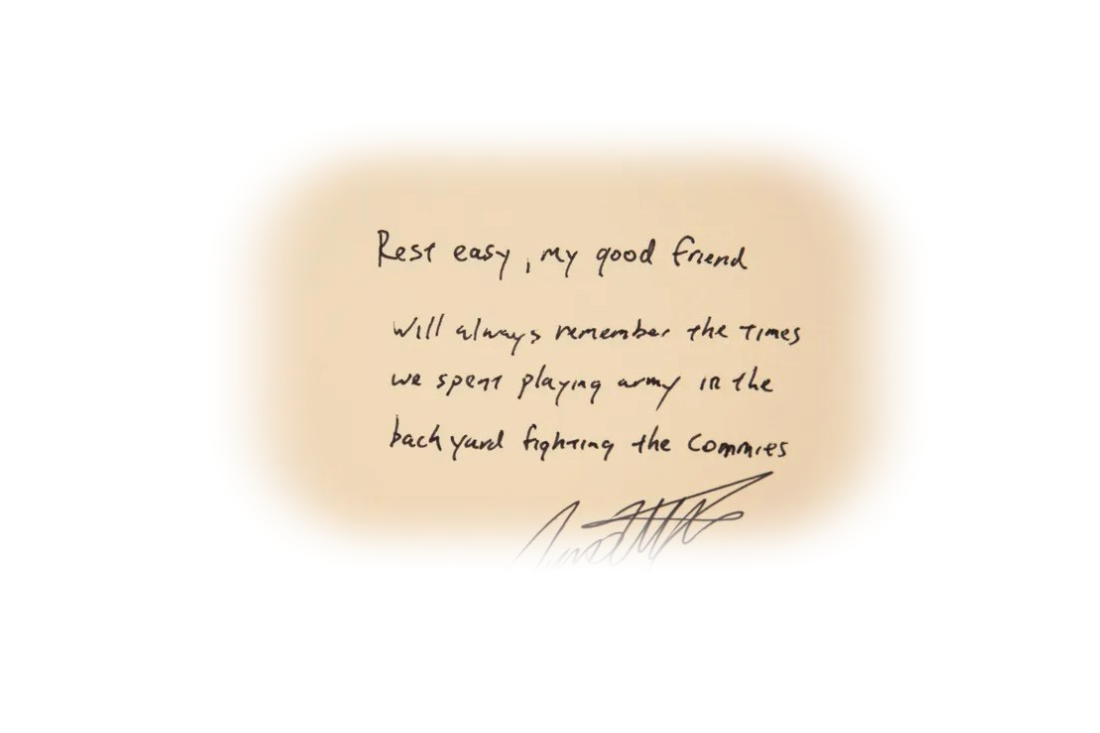 Rest easy, my good friend
will always remember the times
we spent playing army in the
back yard fighting the Commies